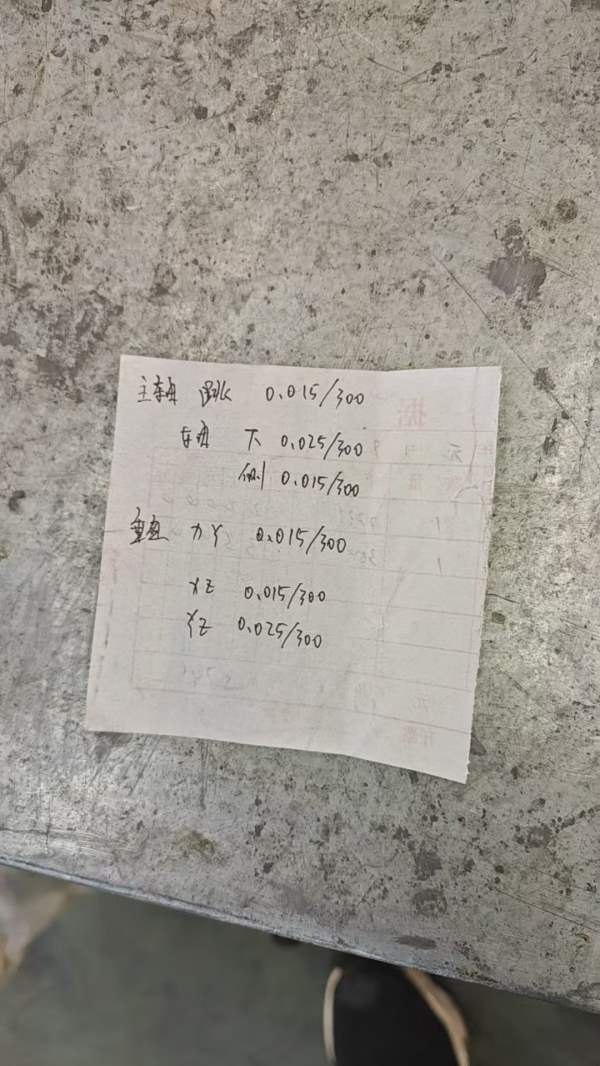 主轴 跳 0.015/300
下 0.025/300
侧 0.015/300
垂直 XY 0.015/300
XZ 0.015/300
YZ 0.025/300